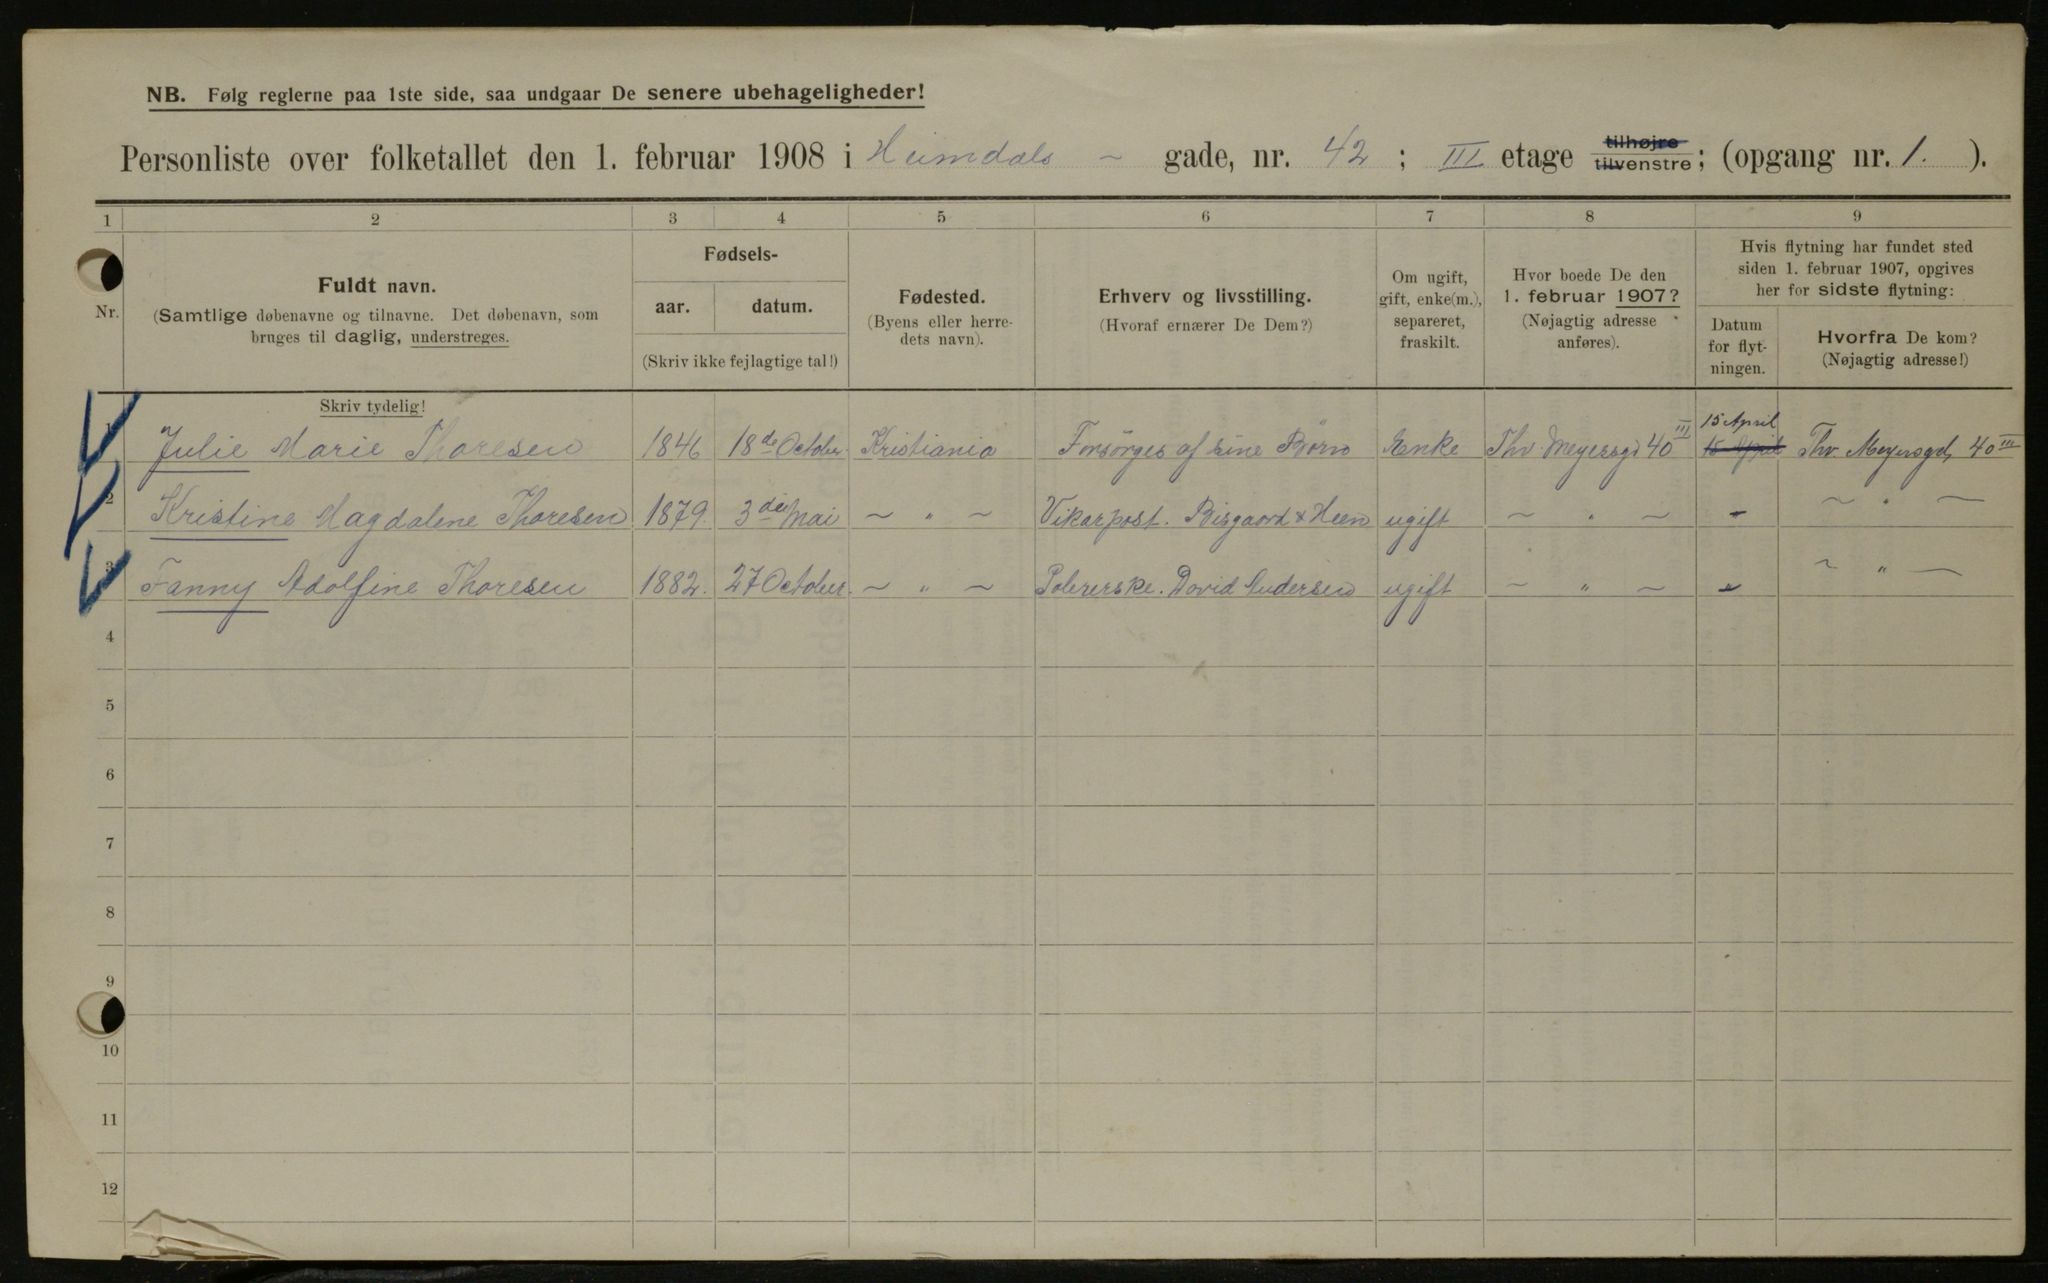 NB. Følg reglerne paa 1ste side, saa undgaar De senere ubehageligheder!
Personliste over folketallet den 1. februar 1908 i Heimdals - gade, nr. 42 ; III etage tilhøjre tilvenstre; (opgang nr. 1. ).
1 2 3 4 5 6 7 8 9
Nr.
Fuldt navn.
(Samtlige døbenavne og tilnavne. Det døbenavn, som
bruges til daglig, understreges.
Skriv tydelig!
Fødsels-
aar. datum.
(Skriv ikke fejlagtige tal!)
Fødested.
(Byens eller herre-
dets navn).
Erhverv og livsstilling.
(Hvoraf ernærer De Dem?)
Om ugift,
gift, enke(m.),
separeret,
fraskilt.
Hvor boede De den
1. februar 1907?
(Nøjagtig adresse
anføres).
Hvis flytning har fundet sted
siden 1. februar 1907, opgives
her for sidste flytning:
Datum
for flyt-
ningen.
Hvorfra De kom?
(Nøjagtig adresse!)
15 April
1 Julie Marie Thoresen 1846 18de October. Kristiania Forsörges af sine Börn Enke Thv Meyersgd 40 III 15 April Thv. Meyersgd, 40 III
2 Kristine Magdalene Thoresen 1879. 3die Mai - " - Vikarpost. Bisgaard & Heen ugift - " - - - " -
3 Fanny Adolfine Thoresen 1882. 27 October. - " - Polererske. David Andersen ugift - " - - - " -
4
5
6
7
8
9
10
11
12